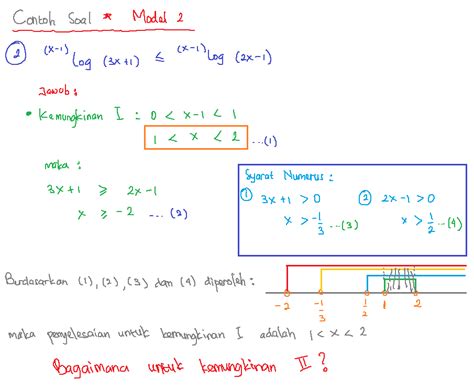 Contoh Soal * Model 2
② (x-1)log (3x+1) ≤ (x-1)log (2x-1)
Jawab:
• Kemungkinan I : 0 < x-1 < 1
1 < x < 2 ...(1)
maka :
3x+1 ≥ 2x-1
x ≥ -2 ...(2)
Syarat Numerus:
① 3x+1 > 0 ② 2x-1 > 0
x > -1/3 ...(3) x > 1/2 ...(4)
Berdasarkan (1), (2), (3) dan (4) diperoleh :
-2 -1/3 1/2 1 2
maka penyelesaian untuk kemungkinan I adalah 1 < x < 2
Bagaimana untuk kemungkinan II ?